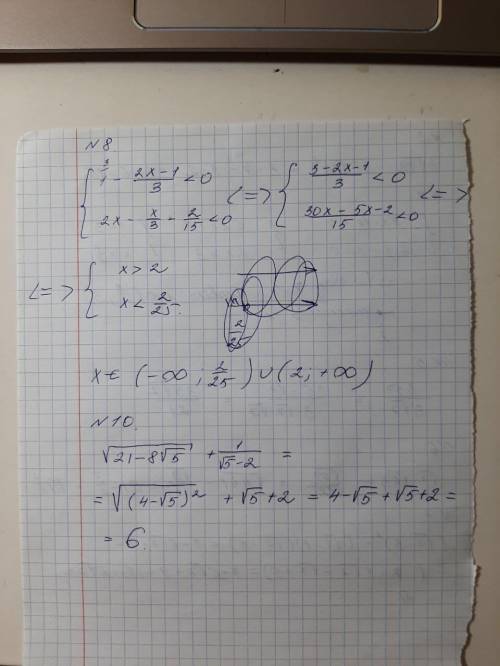 N8
{ 1 - (2x-1)/3 < 0 <=> { (3-2x-1)/3 < 0 <=>
{ 2x - x/3 - 2/15 < 0 { (30x-5x-2)/15 < 0
<=> { x > 2
{ x < 2/25.
2/25
x ∈ (-∞; 2/25) ∪ (2; +∞)
N10.
√(21-8√5) + 1/(√5-2) =
= √((4-√5)²) + √5+2 = 4-√5+√5+2 =
= 6.